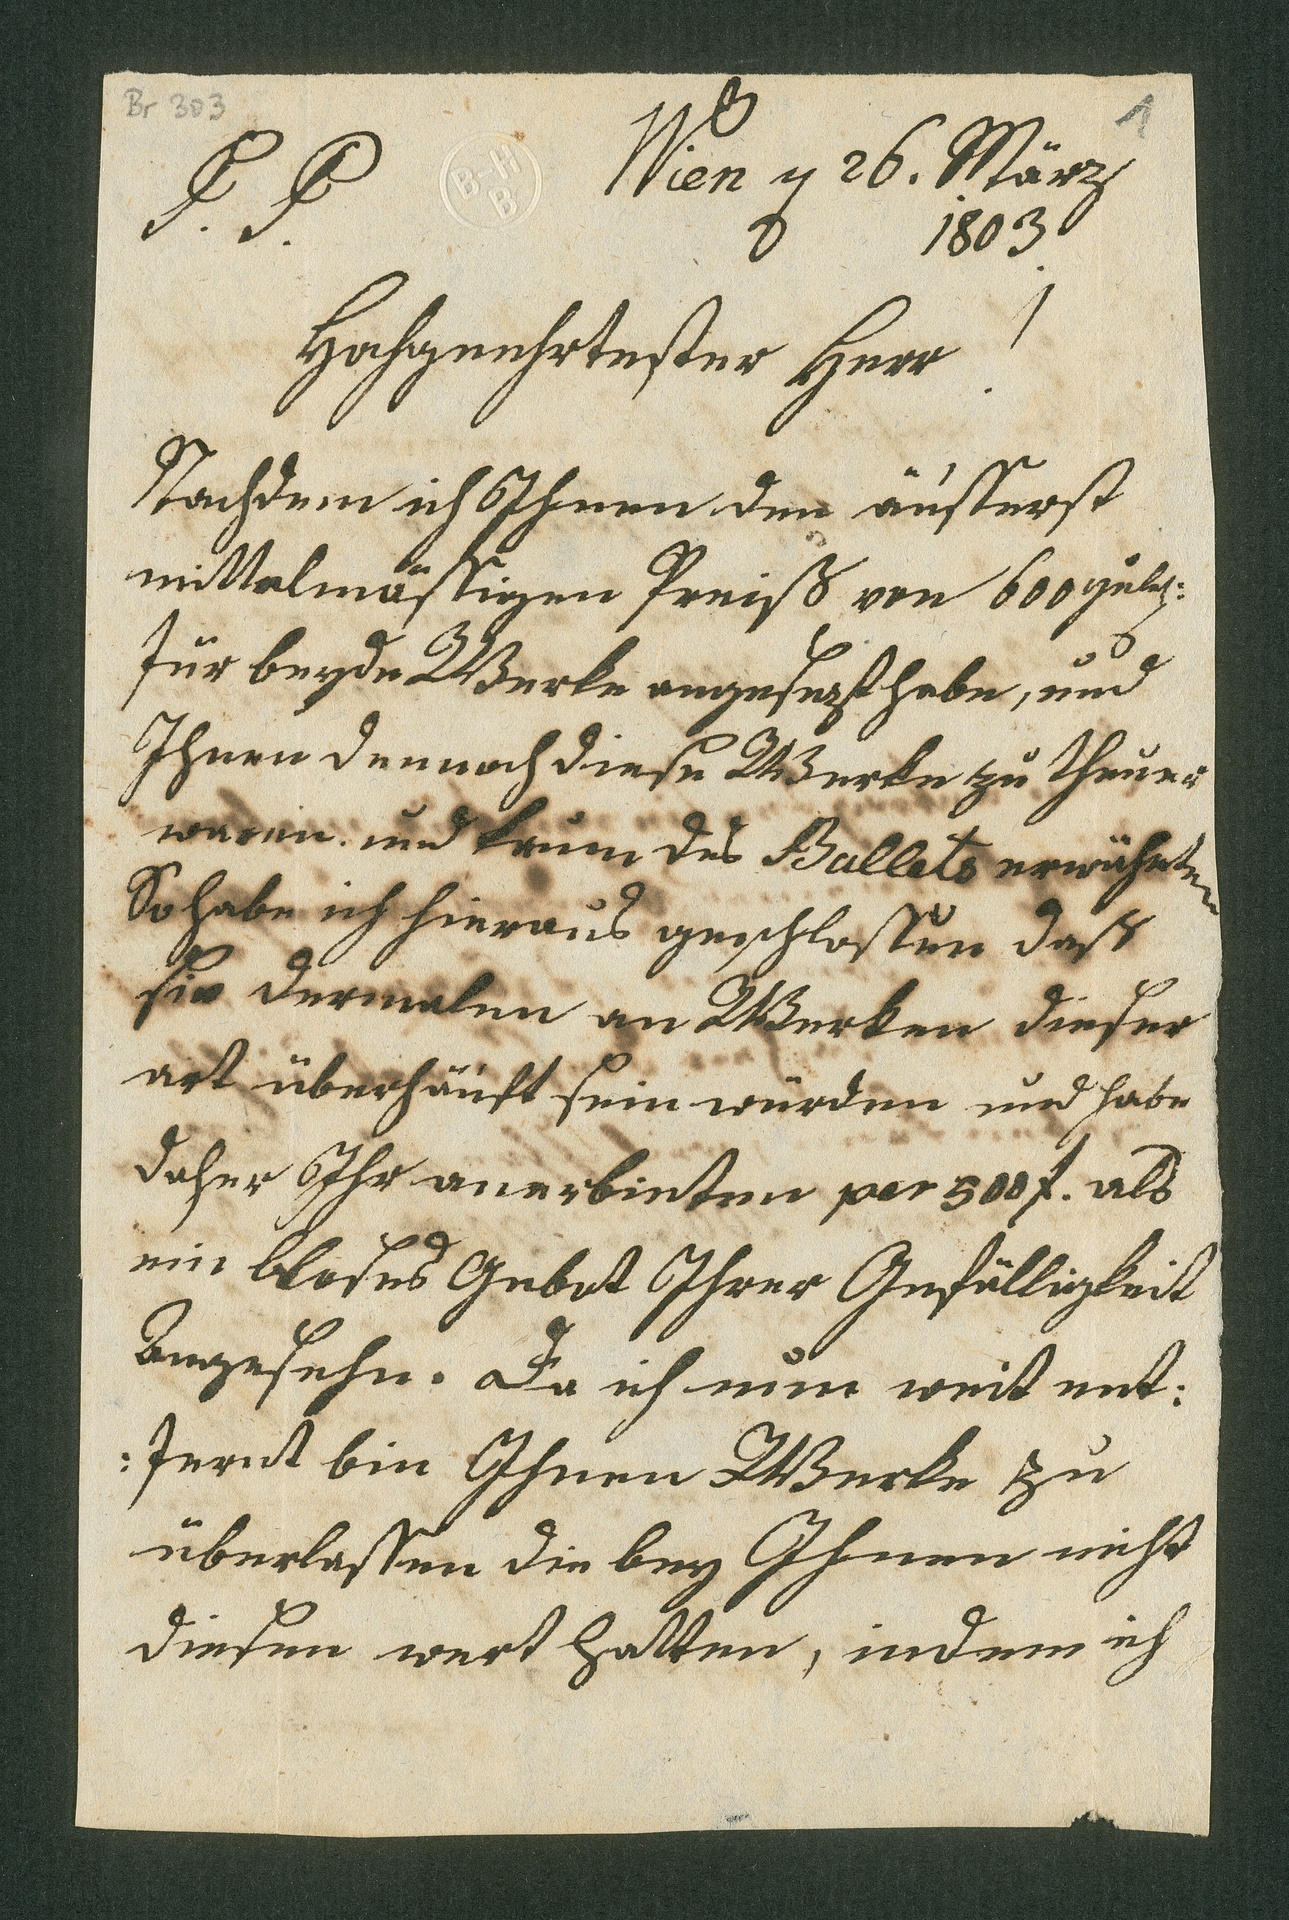 Br 303
1
P. P.
B-H
B
Wien 26. März
1803
Hochgeehrtester Herr!
Nachdem ich Ihnen den äusserst
mittelmässigen Preiß von 600
für beyde Werke angesezt habe, und
Ihnen dennoch diese Werke zu theuer
waren. und kaum des Ballets erwähnten
So habe ich hieraus geschlossen daß
sie dermalen an Werken dieser
art überhäuft sein würden und habe
daher Ihr anerbieten per 500 f. als
ein bloses Gebot Ihrer Gefälligkeit
Angesehn. Da ich nun weit ent:
:fernt bin Ihnen Werke zu
überlassen die bey Ihnen nicht
diesen wert hatten, indem ich